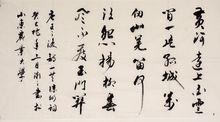 黄河遠上白雲
間一片孤城萬
仞山羌笛何
須怨楊柳春
風不度玉門關
唐王之渙詩一首涼州詞
農業大學